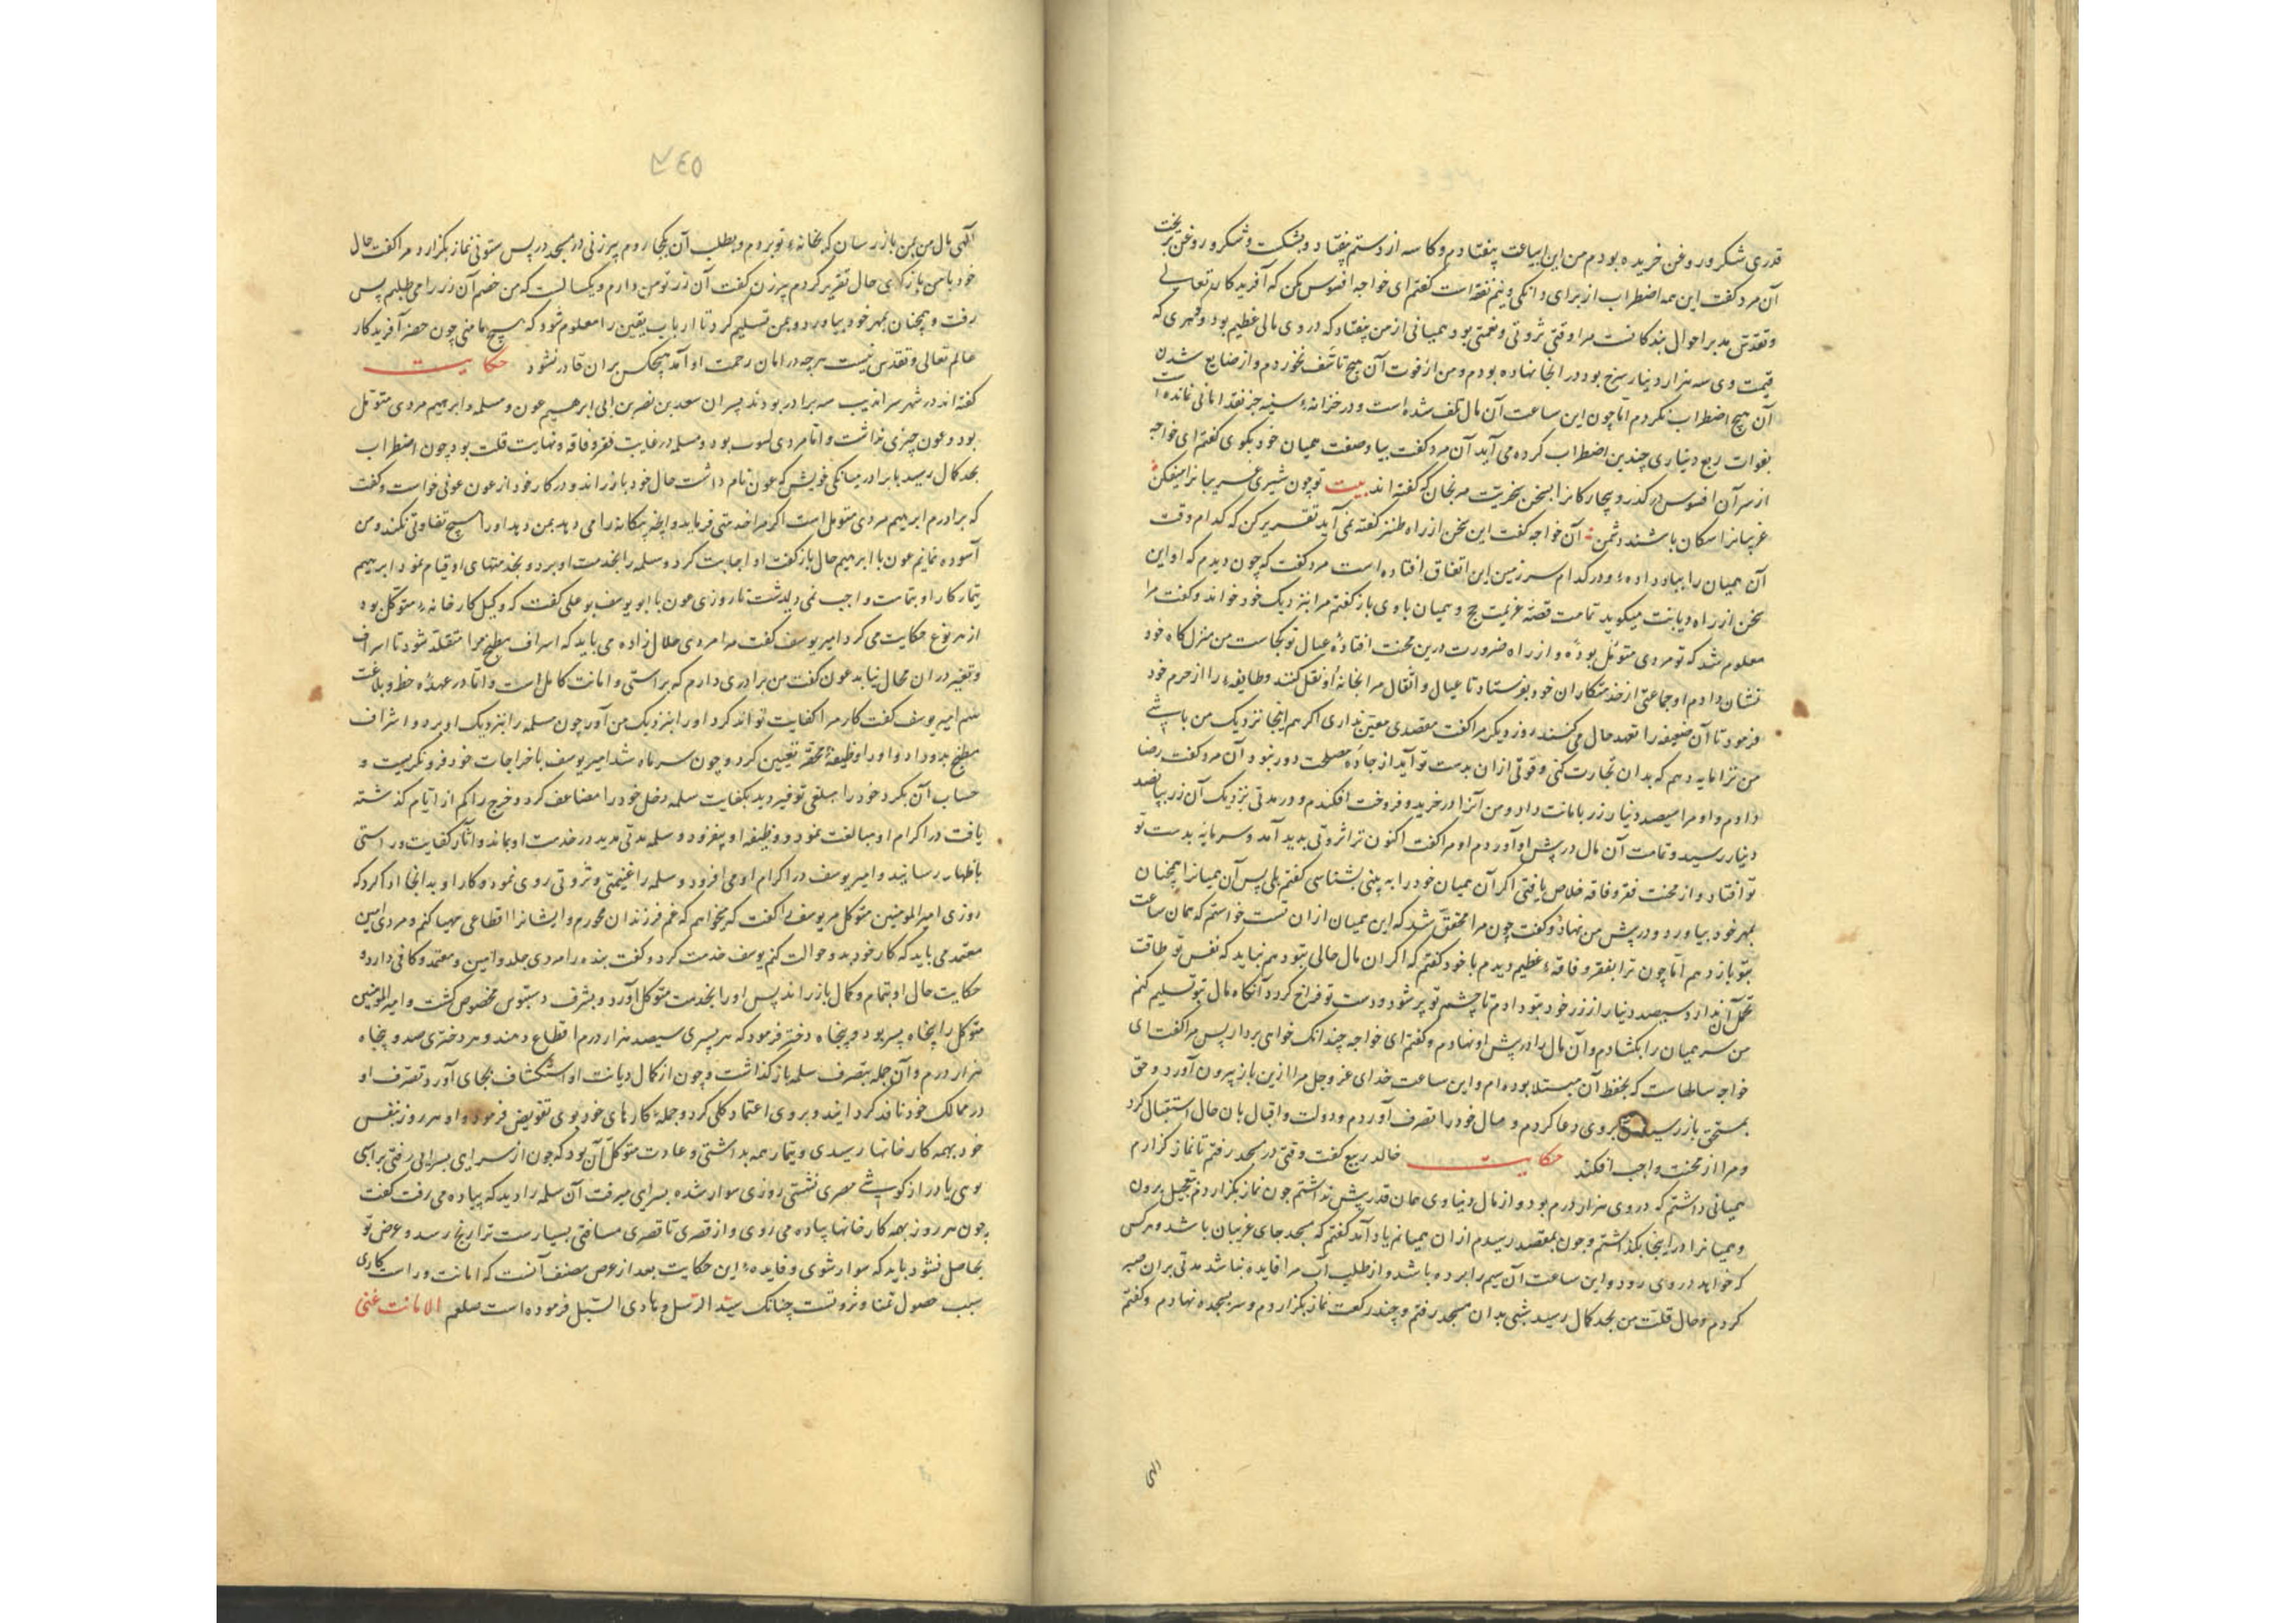 قدری شکر و روغن خریده بودم من این ساعت بیفتادم و کاسه از دستم بیفتاد و بشکست و شکر و روغن بریخت
آن مرد کفت این همه اضطراب از برای دانکی و نیم نقره است کفتم ای خواجه افسوس مکن که آفریدکار تعالی
و تقدس مدبر احوال بندکانست مرا وقتی ثروتی و نعمتی بود همیانی از من بیفتاد که در وی مالی عظیم بود و کمری که
قیمت وی سه هزار دینار سرخ بود در آنجا نهاده بودم و من از فوت آن هیچ تاسف نخوردم و از ضایع شدن
آن هیچ اضطراب نکردم اما چون این ساعت آن مال تلف شده است و در خزانهٔ سینه جز نقد امانی نمانده است
بفوات ربع دیناری چندین اضطراب کرده می آید آن مرد کفت بیا و صفت همیان خود بکوی کفتم ای خواجه
از سر آن افسوس در کذر و بیچارکانرا بسخن بخریت مرنجان که کفته اند بیت تو چون شیری غریبانرا میفکن
غریبانرا سکان باشند دشمن آن خواجه کفت این سخن از راه طنز کفته نمی آید تقریر کن که کدام وقت
آن همیان را بباد داده و در کدام سرزمین این اتفاق افتاده است مرد کفت که چون دیدم که او این
سخن از راه دیانت میکوید تمامت قصهٔ عزیمت حج و همیان با وی باز کفتم مرا بنزدیک خود خواند و کفت مرا
معلوم شد که تو مردی متمول بودهٔ و از راه ضرورت درین محنت افتادهٔ عیال تو کجاست من منزل کاه خود
نشان دادم او جماعتی از خدمتکاران خود بفرستاد تا عیال و اثقال مرا بخانهٔ او نقل کنند و طایفهٔ را از حرم خود
فرمود تا آن ضعیفه را تعهد حال می کنند روز دیکر مرا کفت مقصدی معین نداری اکر هم اینجا نزدیک من باشی
من ترا مایه دهم که بدان تجارت کنی و قوتی ازان بدست تو آید از جادهٔ مصلحت دور نبود آن مرد کفت رضا
دادم و او مرا سیصد دینار زر بامانت داد و من آنرا در خرید و فروخت افکندم و در مدتی نزدیک آن زر بپانصد
دینار رسید و تمامت آن مال در پیش او آوردم او مرا کفت اکنون ترا ثروتی پدید آمد و سرمایه بدست تو
تو افتاد و از محنت فقر و فاقه خلاص یافتی اکر آن همیان خود را به بینی بشناسی کفتم بلی پس آن همیانرا همچنان
بمهر خود بیاورد و در پیش من نهاد و کفت چون مرا محقق شد که این همیان ازان تست خواستم که همان ساعت
بتو باز دهم اما چون ترا بفقر و فاقهٔ عظیم دیدم با خود کفتم که اکر ان مال حالی بتو دهم نباید که نفس تو طاقت
تحمل آن ندارد و سیصد دینار از زر خود بتو دادم تا چشم تو پر شود و دست تو فراخ کردد آنکاه مال بتو تسلیم کنم
من سر همیان را بکشادم و آن مال را در پیش او نهادم و کفتم ای خواجه چندانک خواهی بردار پس مرا کفت ای
خواجه سالهاست که بحفظ آن مبتلا بوده ام و این ساعت خدای عز و جل مرا ازین بار بیرون آورد و حق
بمستحق باز رسید بروی دعا کردم و مال خود را تصرف آوردم و دولت و اقبال بان حال استقبال کرد
و مرا از محنت واجب افکند حکایت خالد ربیع کفت وقتی در مسجد رفتم تا نماز کزارم
همیانی داشتم که در وی هزار درم بود و از مال دنیاوی همان قدر بیش نداشتم چون نماز بکزاردم بتعجیل برون
و همیانرا در اینجا بکذاشتم و چون بمقصد رسیدم ازان همیانم یاد آمد کفتم که مسجد جای غریبان باشد و هر کس
که خواهد در وی رود و این ساعت آن سیم را برده باشد و از طلب آب مرا فایده نباشد مدتی بران صبر
کردم و حال قلت من بحد کمال رسید شبی بدان مسجد رفتم و چند رکعت نماز بکزاردم و سر بسجده نهادم و کفتم
الهی
٤٤٥
الهی مال من بمن باز رسان که بخانهٔ تو بردم و بطلب آن بکجا روم پیرزنی در مسجد در پس ستونی نماز بکزارد مرا کفت حال
خود با من باز کوی حال تقریر کردم پیرزن کفت آن زر تو من دارم و یکسالست که من خصم آن زر را می طلبم پس
رفت و همچنان بمهر خود بیاورد و بمن تسلیم کرد تا ارباب یقین را معلوم شود که هیچ مامنی چون حضر آفریدکار
عالم تعالی و تقدس نیست هرچه در امان رحمت او آمد هیچکس بران قادر نشود حکایت
کفته اند در شهر سراندیب سه برادر بودند پسران سعد بن نصر بن ابی ابراهیم عون و مسلمه و ابراهیم مردی متمول
بود و عون چیزی نداشت و اما مردی بود و مسلمه در غایت فقر و فاقه و نهایت قلت بود چون اضطراب
بحد کمال رسید با برادر میانکی خویش که عون نام داشت حال خود باز راند و در کار خود از عون عونی خواست و کفت
که برادرم ابراهیم مردی متمول است اکر مرا خدمتی فرماید و آنچه بیکانه را می دهد بمن دهد او را هیچ تفاوتی نکند و من
آسوده نمایم عون با ابراهیم حال باز کفت او اجابت کرد و مسلمه را بخدمت او برد و بخدمتهای او قیام نمود ابراهیم
تیمار کار او بتمامت واجب نمی دید داشت تا روزی عون با ابو یوسف بو علی کفت که وکیل کارخانهٔ متوکل بود
از هر نوع حکایت می کرد امیر یوسف کفت مرا مردی حلال زاده می باید که اسراف مطبخ مرا متقلد شود تا اسراف
و تغیر دران مجال نیابد عون کفت من برادری دارم که براستی و امانت کامل است و اما در عهدهٔ خط و بلاغت
نیم امیر یوسف کفت کار مرا کفایت تواند کرد او را بنزدیک من آور چون مسلمه را بنزدیک او برد و اشراف
مطبخ بدو داد و او را وظیفهٔ محقر تعیین کرد و چون سر ماه شد امیر یوسف با خراجات خود فرو نکریست و
حساب آن بکرد خود را مبلغی توفیر دید بکفایت مسلمه دخل خود را مضاعف کرد و خرج را کم از ایام کذشته
یافت در اکرام او مبالغت نمود و وظیفه او بیفزود و مسلمه مدتی مدید در خدمت او بماند و آثار کفایت و راستی
باظهار رسانید و امیر یوسف در اکرام او می افزود و مسلمه را غنیمتی و ثروتی روی نمود و کار او بدانجا ادا کرد که
روزی امیر المومنین متوکل مر یوسف را کفت که میخواهم که غم فرزندان بخورم و ایشانرا اقطاعی مهیا کنم و مردی امین
معتمد می باید که کار خود بدو حوالت کنم یوسف خدمت کرد و کفت بنده را مردی جلد و امین و معتمد و کافی دارد و
حکایت حال او بتمام و کمال باز راند پس او را بخدمت متوکل آورد و بشرف دستبوس مخصوص کشت و امیر المومنین
متوکل را پنجاه پسر بود و پنجاه دختر فرمود که هر پسری سیصد هزار درم اقطاع دهند و هر دختری صد و پنجاه
هزار درم و آن جمله بتصرف سلمه باز کذاشت و چون از کمال دیانت او استکشاف بجای آورد تصرف او
در ممالک خود نافذ کرد ایند و بروی اعتماد کلی کرد و جملهٔ کارهای خود بوی تفویض فرمود و او هر روز بنفس
خود بهمه کارخانها رسیدی و تیمار همه بداشتی و عادت متوکل آن بود که چون از سرای بسرایی رفتی بر اسبی
وی یا دراز کوشی مصری نشستی روزی سوار شده بسرای میرفت آن سلمه را دید که پیاده می رفت کفت
چون هر روز بهمه کارخانها پیاده می روی و از قصری تا قصری مسافتی بسیارست ترا رنج رسد و غرض تو
بحاصل نشود باید که سوار شوی و فایدهٔ این حکایت بعد از عرض مصنف آنست که امانت و راست کاری
سبب حصول تمنا و ثروتست چنانک سید الرسل و هادی السبل فرموده است صلعم الامانت غنی